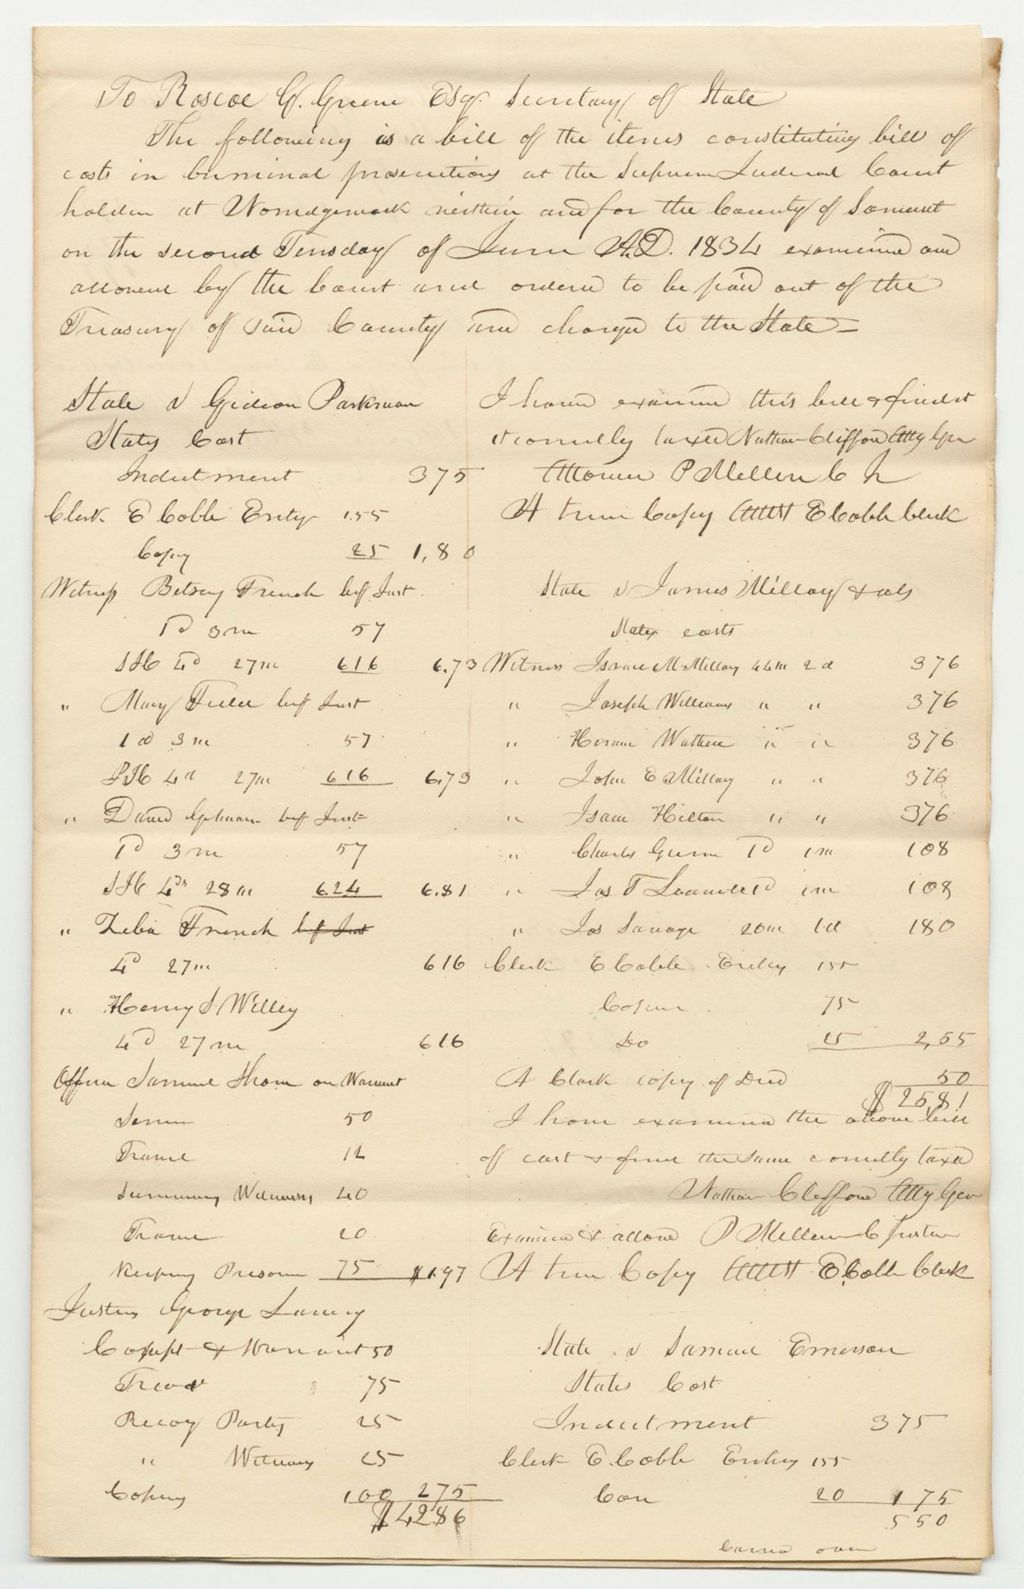 To Roscoe G. Greene Esqr. Secretary of State
The following is a bill of the items constituting bill of
costs in Criminal prosecutions at the Supreme Judicial Court
holden at Norridgewock within and for the County of Somerset
on the second Tuesday of June A.D. 1834 examined and
allowed by the Court and ordered to be paid out of the
Treasury of said County and charged to the State =
State v Gideon Parkman
States Cost
Indictment 375
Clerk E Cobb Entry 1.55
Copy 25 1,80
Witness Betsey French bef Just.
1d 3m 57
SJC 4d 27m 616 6.73
" Mary Fuller bef Just
1d 3m 57
SJC 4d 27m 616 6.73
" David bef Just
1d 3m 57
SJC 4ds 28m 624 6.81
" Zeba French bef Just
4d 27m 616
" Henry S Willey
4d 27m 616
Officer Samuel Thom on Warrant
Service 50
Travel 12
Summoning Witnesses 40
Travel 20
Keeping Prisoner 75 $1.97
Justice George
Compt & Warrant 50
75
Recog Party 25
" Witnesses 25
Copies 100 275
$4286
I have examined this bill & find it
it correctly taxed Nathan Clifford Atty Gen
Allowed P Mellen C J
A true Copy Attest E Cobb Clerk
State v James Millay & als
States costs
Witness Isaac M Millay 44m 2d 376
" Joseph Williams " " 376
" Hiram " " 376
" John E Millay " " 376
" Isaac Hilton " " 376
" Charles Greene 1d 1m 108
" Jos T 1d 1m 108
" Jos Savage 20m 1d 180
Clerk E Cobb Entry 155
Copies 75
Do 25 2,55
A Clark copy of Deed 50
$2581
I have examined the above bill
of cost & find the same correctly taxed
Nathan Clifford Atty Gen
Examined & allowed P Mellen C Justice
A true Copy Attest E Cobb Clerk
State v Samuel Emerson
States Cost
Indictment 375
Clerk E Cobb Entry 155
20 175
550
Carried over